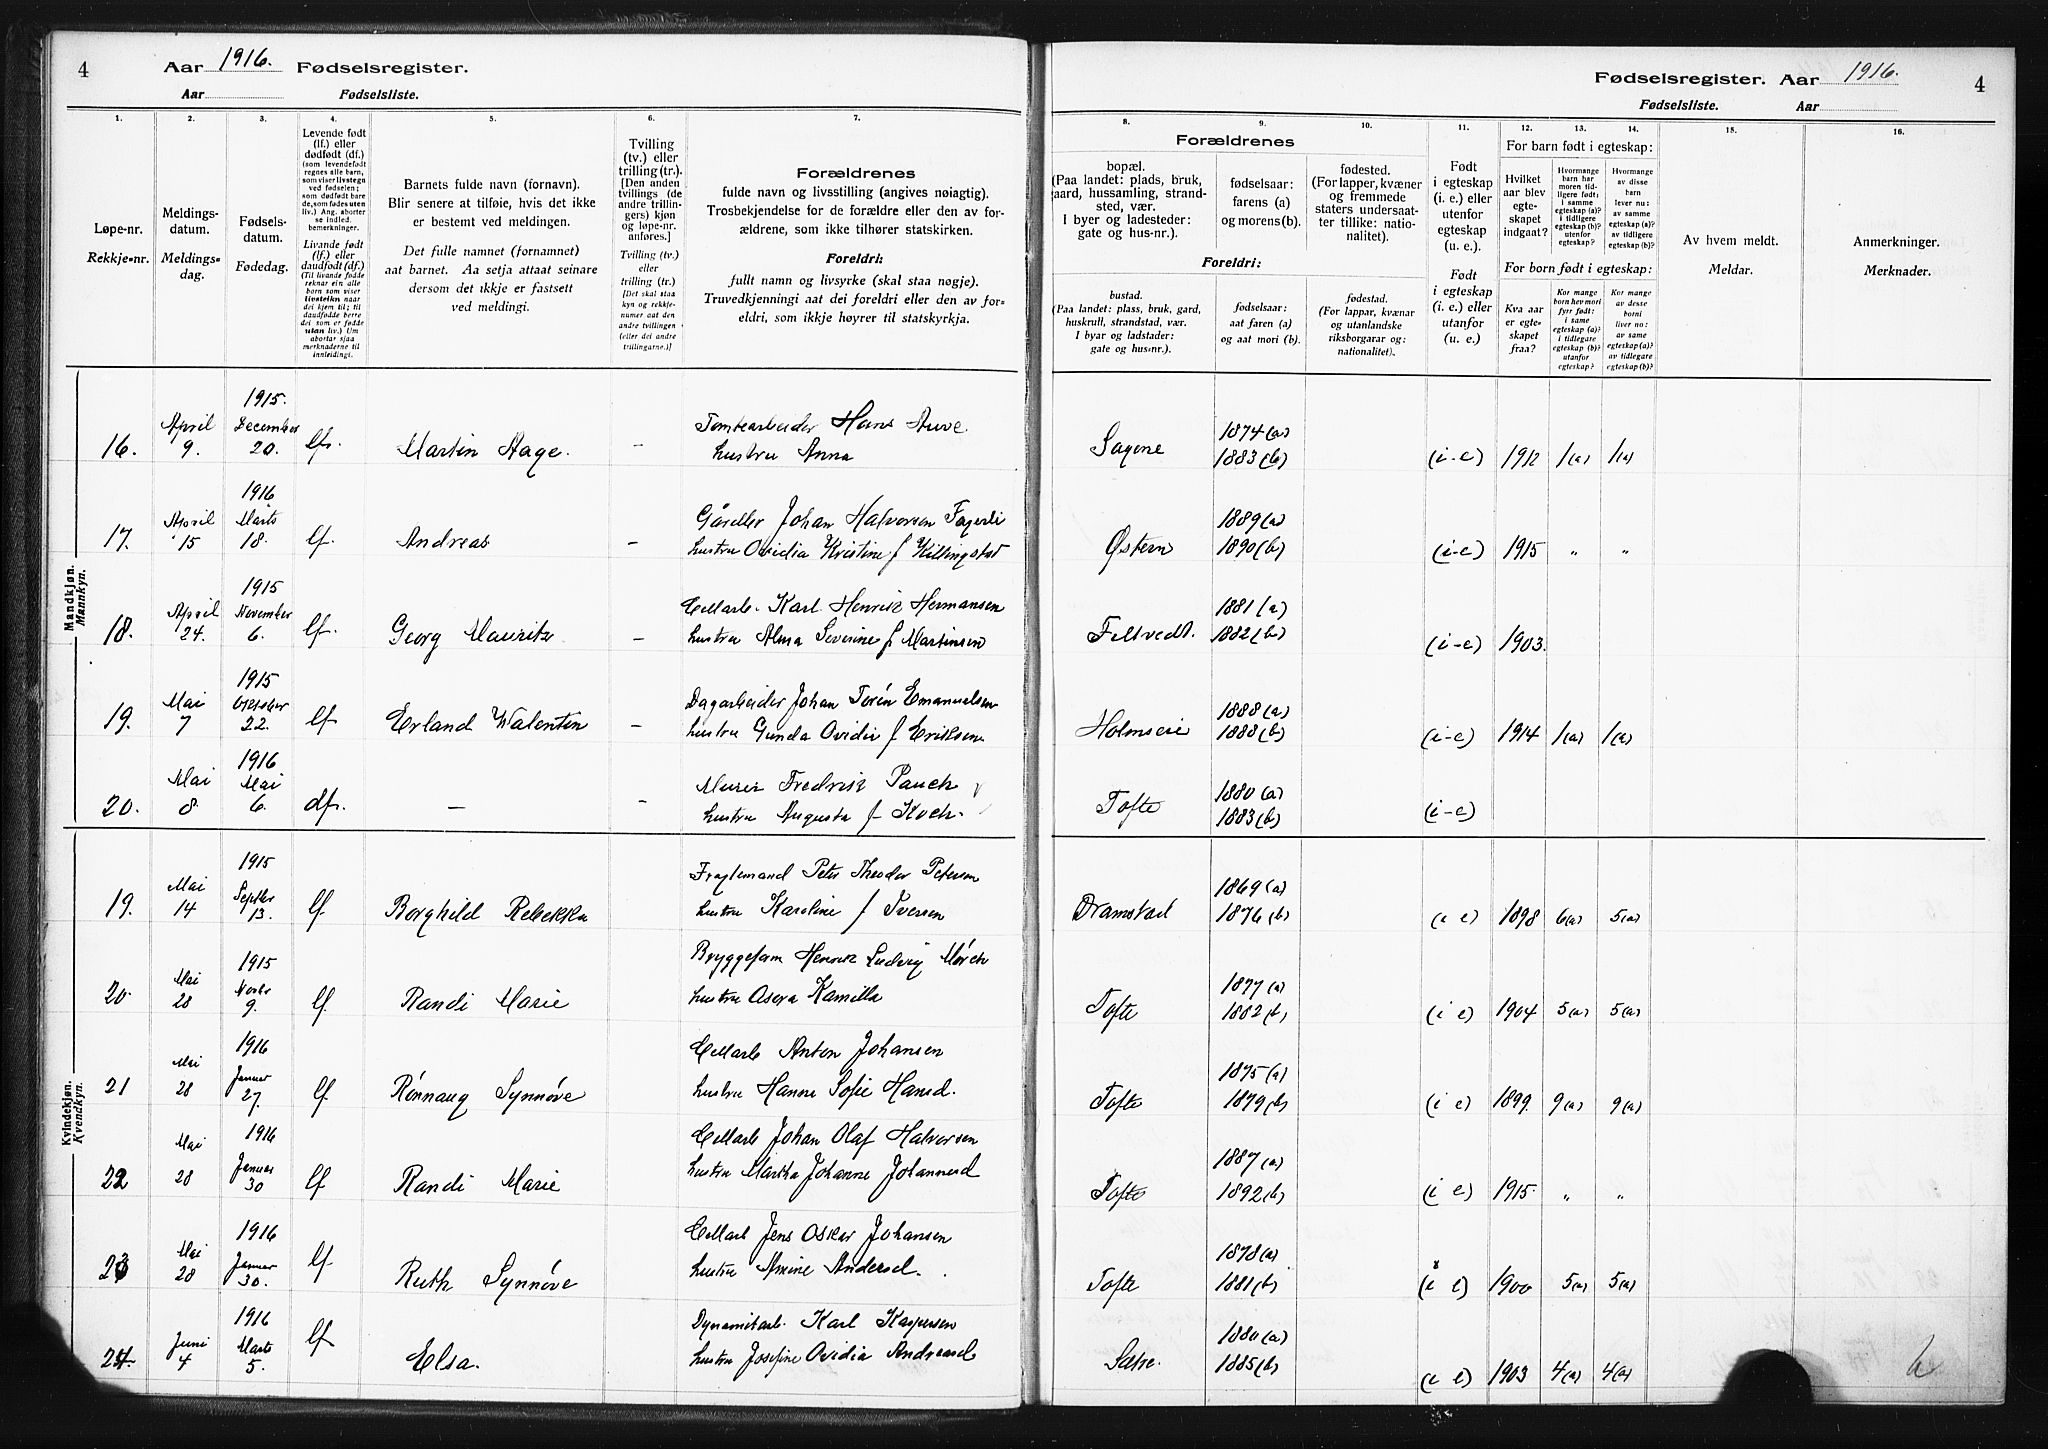 4 Aar 1916. Fødselsregister.
Aar Fødselsliste.
Fødselsregister. Aar 1916. 4
Fødselsliste. Aar
1. 2. 3. 4. 5. 6. 7. 8. 9. 10. 11. 12. 13. 14. 15. 16.
Løpe-nr.
Rekkje-nr.
Meldings-
datum.
Meldings-
dag.
Fødsels-
datum.
Fødedag.
Levende født
(lf.) eller
dødfødt (df.)
(som levendefødt
regnes alle barn,
som viser livstegn
ved fødselen;
som dødfødt bare
de, som fødes uten
liv.) Ang. aborter
se indled.
bemerkninger.
Livande født
(lf.) eller
daudfødt (df.)
(Til livande fødde
reknar ein alle
born som viser
livsteikn naar
dei kjem til; til
daudfødde berre
dei som er fødde
utan liv.) Um
abortar sjaa
merknaderne til
innleidingi.
Barnets fulde navn (fornavn).
Blir senere at tilføie, hvis det ikke
er bestemt ved meldingen.
Det fulle namnet (fornamnet)
aat barnet. Aa setja attaat seinare
dersom det ikkje er fastsett
ved meldingi.
Tvilling
(tv.) eller
trilling (tr.).
[Den anden
tvillings (de
andre trillin-
gers) kjøn
og løpe-nr.
anføres.]
Tvilling (tv.)
eller
trilling (tr.)
[Det skal staa
kyn og rekkje-
numer aat den
andre tvillingen
(eller dei andre
trillingarne.)]
Forældrenes
fulde navn og livsstilling (angives nøiagtig).
Trosbekjendelse for de forældre eller den av for-
ældrene, som ikke tilhører statskirken.
Foreldri:
fullt namn og livsyrke (skal staa nøgje).
Truvedkjenningi aat dei foreldri eller den av for-
eldri, som ikkje høyrer til statskyrkja.
Forældrenes
bopæl.
(Paa landet: plads, bruk,
gaard, hussamling, strand-
sted, vær.
I byer og ladesteder:
gate og hus-nr.).
fødselsaar:
farens (a)
og morens (b).
fødested.
(For lapper, kvæner
og fremmede
staters undersaat-
ter tillike: natio-
nalitet).
Foreldri:
bustad.
(Paa landet: plass, bruk, gard,
huskrull, strandstad, vær.
I byar og ladstader:
gate og hus-nr.).
fødselsaar:
aat faren (a)
og aat mori (b).
fødestad.
(For lappar, kvænar
og utanlandske
riksborgarar og:
nationalitet).
Født
i egteskap
(i. e.) eller
utenfor
egteskap
(u. e.).
Født
i egteskap
(i. e.) eller
utanfor
(u. e.).
For barn født i egteskap:
Hvilket
aar blev
egte-
skapet
indgaat?
Hvormange
barn har
moren tid-
ligere født:
i samme
egteskap (a)?
i tidligere
egteskap (b)?
utenfor
egteskap?
Hvormange
av disse
barn
lever nu:
av samme
egteskap (a)?
av tidligere
egteskap (b)?
For born født i egteskap:
Kva aar
er egte-
skapet
fraa?
Kor mange
born hev mori
fyrr født:
i same
egteskap (a)?
i tidlegare
egteskap (b)?
utanfor
egteskap?
Kor mange
av desse
borni
liver no:
av same
egteskap (a)?
av tidlegare
egteskap (b)?
Av hvem meldt.
Meldar.
Anmerkninger.
Merknader.
Mandkjøn.
Mannkyn.
16. April 9. 1915. December 20. lf. Martin Aage. – Tomtearbeider Hans Auve. hustru Anna Sagene 1874(a) 1883(b) (i-e) 1912 1(a) 1(a)
17. April 15 1916 Marts 18. lf. Andreas – Johan Halvorsen Fagerli hustru Ovidia Kristine f Killingstad Østern 1889(a) 1890(b) (i-e) 1915 " "
18. April 24. 1915 November 6. lf. Georg Mauritz – Cellarb. Karl Henrik Hermansen hustru Alma Severine f Martinsen Feltvedt. 1881(a) 1882(b) (i-e) 1903.
19. Mai 7 1915 Oktober 22. lf Erland Walentin – Dagarbeider Johan Torén Emanuelsen hustru Gunda Ovidie f Eriksen Holmseie 1888(a) 1888(b) (i-e) 1914 1(a) 1(a)
20. Mai 8. 1916 Mai 6. df. – – Murer Fredrik Pauch hustru Augusta f Koch. Tofte 1880(a) 1883(b) (i-e)
Kvindekjøn.
Kvendkyn.
19. Mai 14 1915 Septbr 13. lf Borghild Rebekka Fragtemand Peter Theodor Petersen hustru Karoline f Iversen Dramstad 1869(a) 1876(b) (i e) 1898 6(a) 5(a)
20. Mai 28 1915 Novbr 9. lf Randi Marie Bryggeform Henrik Ludvig Mørch hustru Asora Kamilla Tofte 1877(a) 1882(b) (i e) 1904 5(a) 5(a)
21 Mai 28 1916 Januar 27. lf Rønnaug Synnøve Cellarb Anton Johansen hustru Hanne Sofie Hansd. Tofte 1875(a) 1879(b) (i e) 1899. 9(a) 9(a)
22 Mai 28 1916 Januar 30 lf Randi Marie Cellarb Johan Olaf Halvorsen hustru Martha Johanne Johannesd Tofte 1887(a) 1892(b) (i e) 1915. " "
23 Mai 28 1916 Januar 30. lf Ruth Synnøve Cellarb Jens Oskar Johansen hustru Amine Andersd. Tofte 1878(a) 1881(b) (i e) 1900 5(a) 5(a)
24. Juni 4 1916 Marts 5. lf Elsa. Dynamitarb. Karl Kaspersen hustru Josefine Ovidia Andreasd Sætre. 1880(a) 1885(b) (i e) 1903 4(a) 4(a)